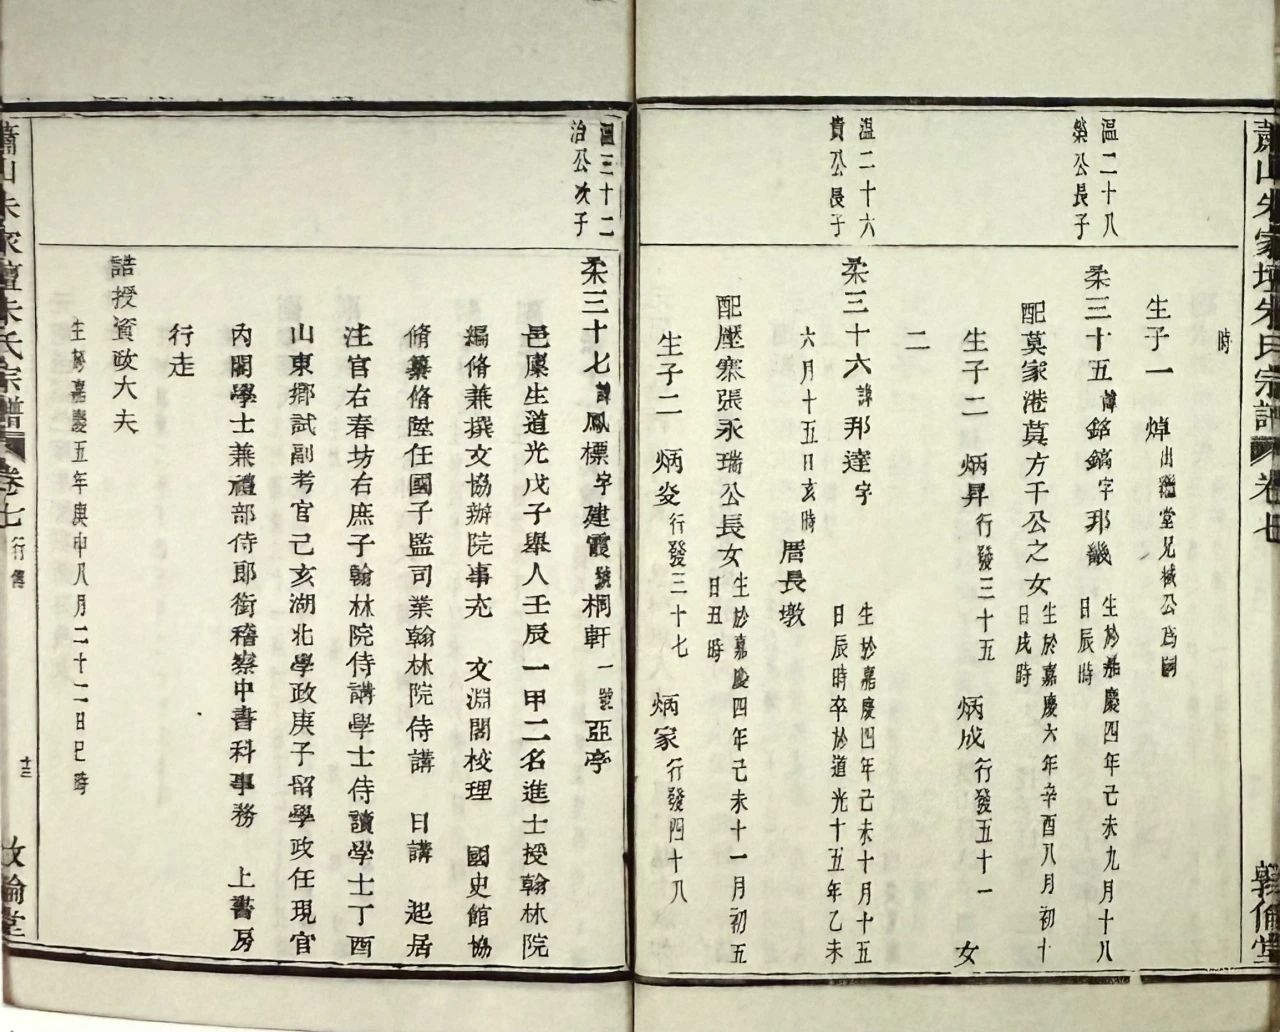 蕭山朱家壇朱氏宗譜 卷七 敦倫堂
時
生子一 焯出繼堂兄棫公爲嗣
溫二十八
榮公長子
柔三十五諱銘鎬字邦畿 生於嘉慶四年己未九月十八
日辰時
配莫家港莫方千公之女 生於嘉慶六年辛酉八月初十
日戌時
生子二 炳昇行發三十五 炳成行發五十一 女
二
溫二十六
貴公長子
柔三十六諱邦達字 生於嘉慶四年己未十月十五
日辰時卒於道光十五年乙未
六月十五日亥時 厝長墩
配壓寨張永瑞公長女 生於嘉慶四年己未十一月初五
日丑時
生子二 炳姿行發三十七 炳家行發四十八
溫三十二
治公次子
柔三十七諱鳳標字建霞號桐軒一號亞亭
邑廩生道光戊子舉人壬辰一甲二名進士授翰林院
編脩兼撰文協辦院事充 文淵閣校理 國史館協
脩纂脩陞任國子監司業翰林院侍講 日講 起居
注官右春坊右庶子翰林院侍講學士侍讀學士丁酉
山東鄉試副考官己亥湖北學政庚子留學政任現官
內閣學士兼禮部侍郎銜稽察中書科事務 上書房
行走
誥授資政大夫
生於嘉慶五年庚申八月二十二日巳時
蕭山朱家壇朱氏宗譜 卷七 行傳 十三 敦倫堂